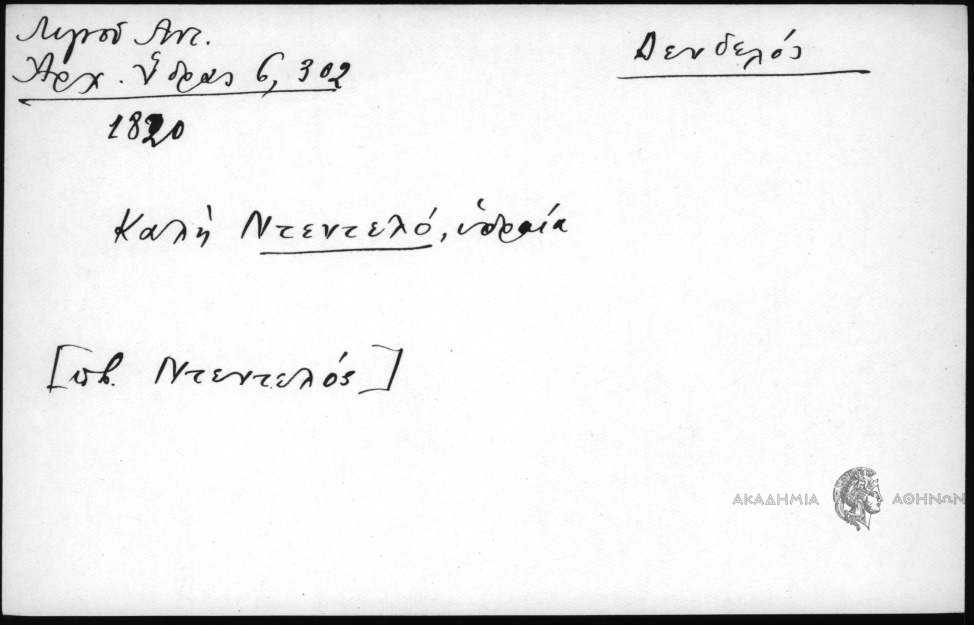 Λιγνού Αντ.
Αρχ. Ὕδρας 6, 302
Δενδελός
1820
Καλή Ντεντελό, ὑδραία
[πβ. Ντεντελός]
ΑΚΑΔΗΜΙΑ ΑΘΗΝΩΝ